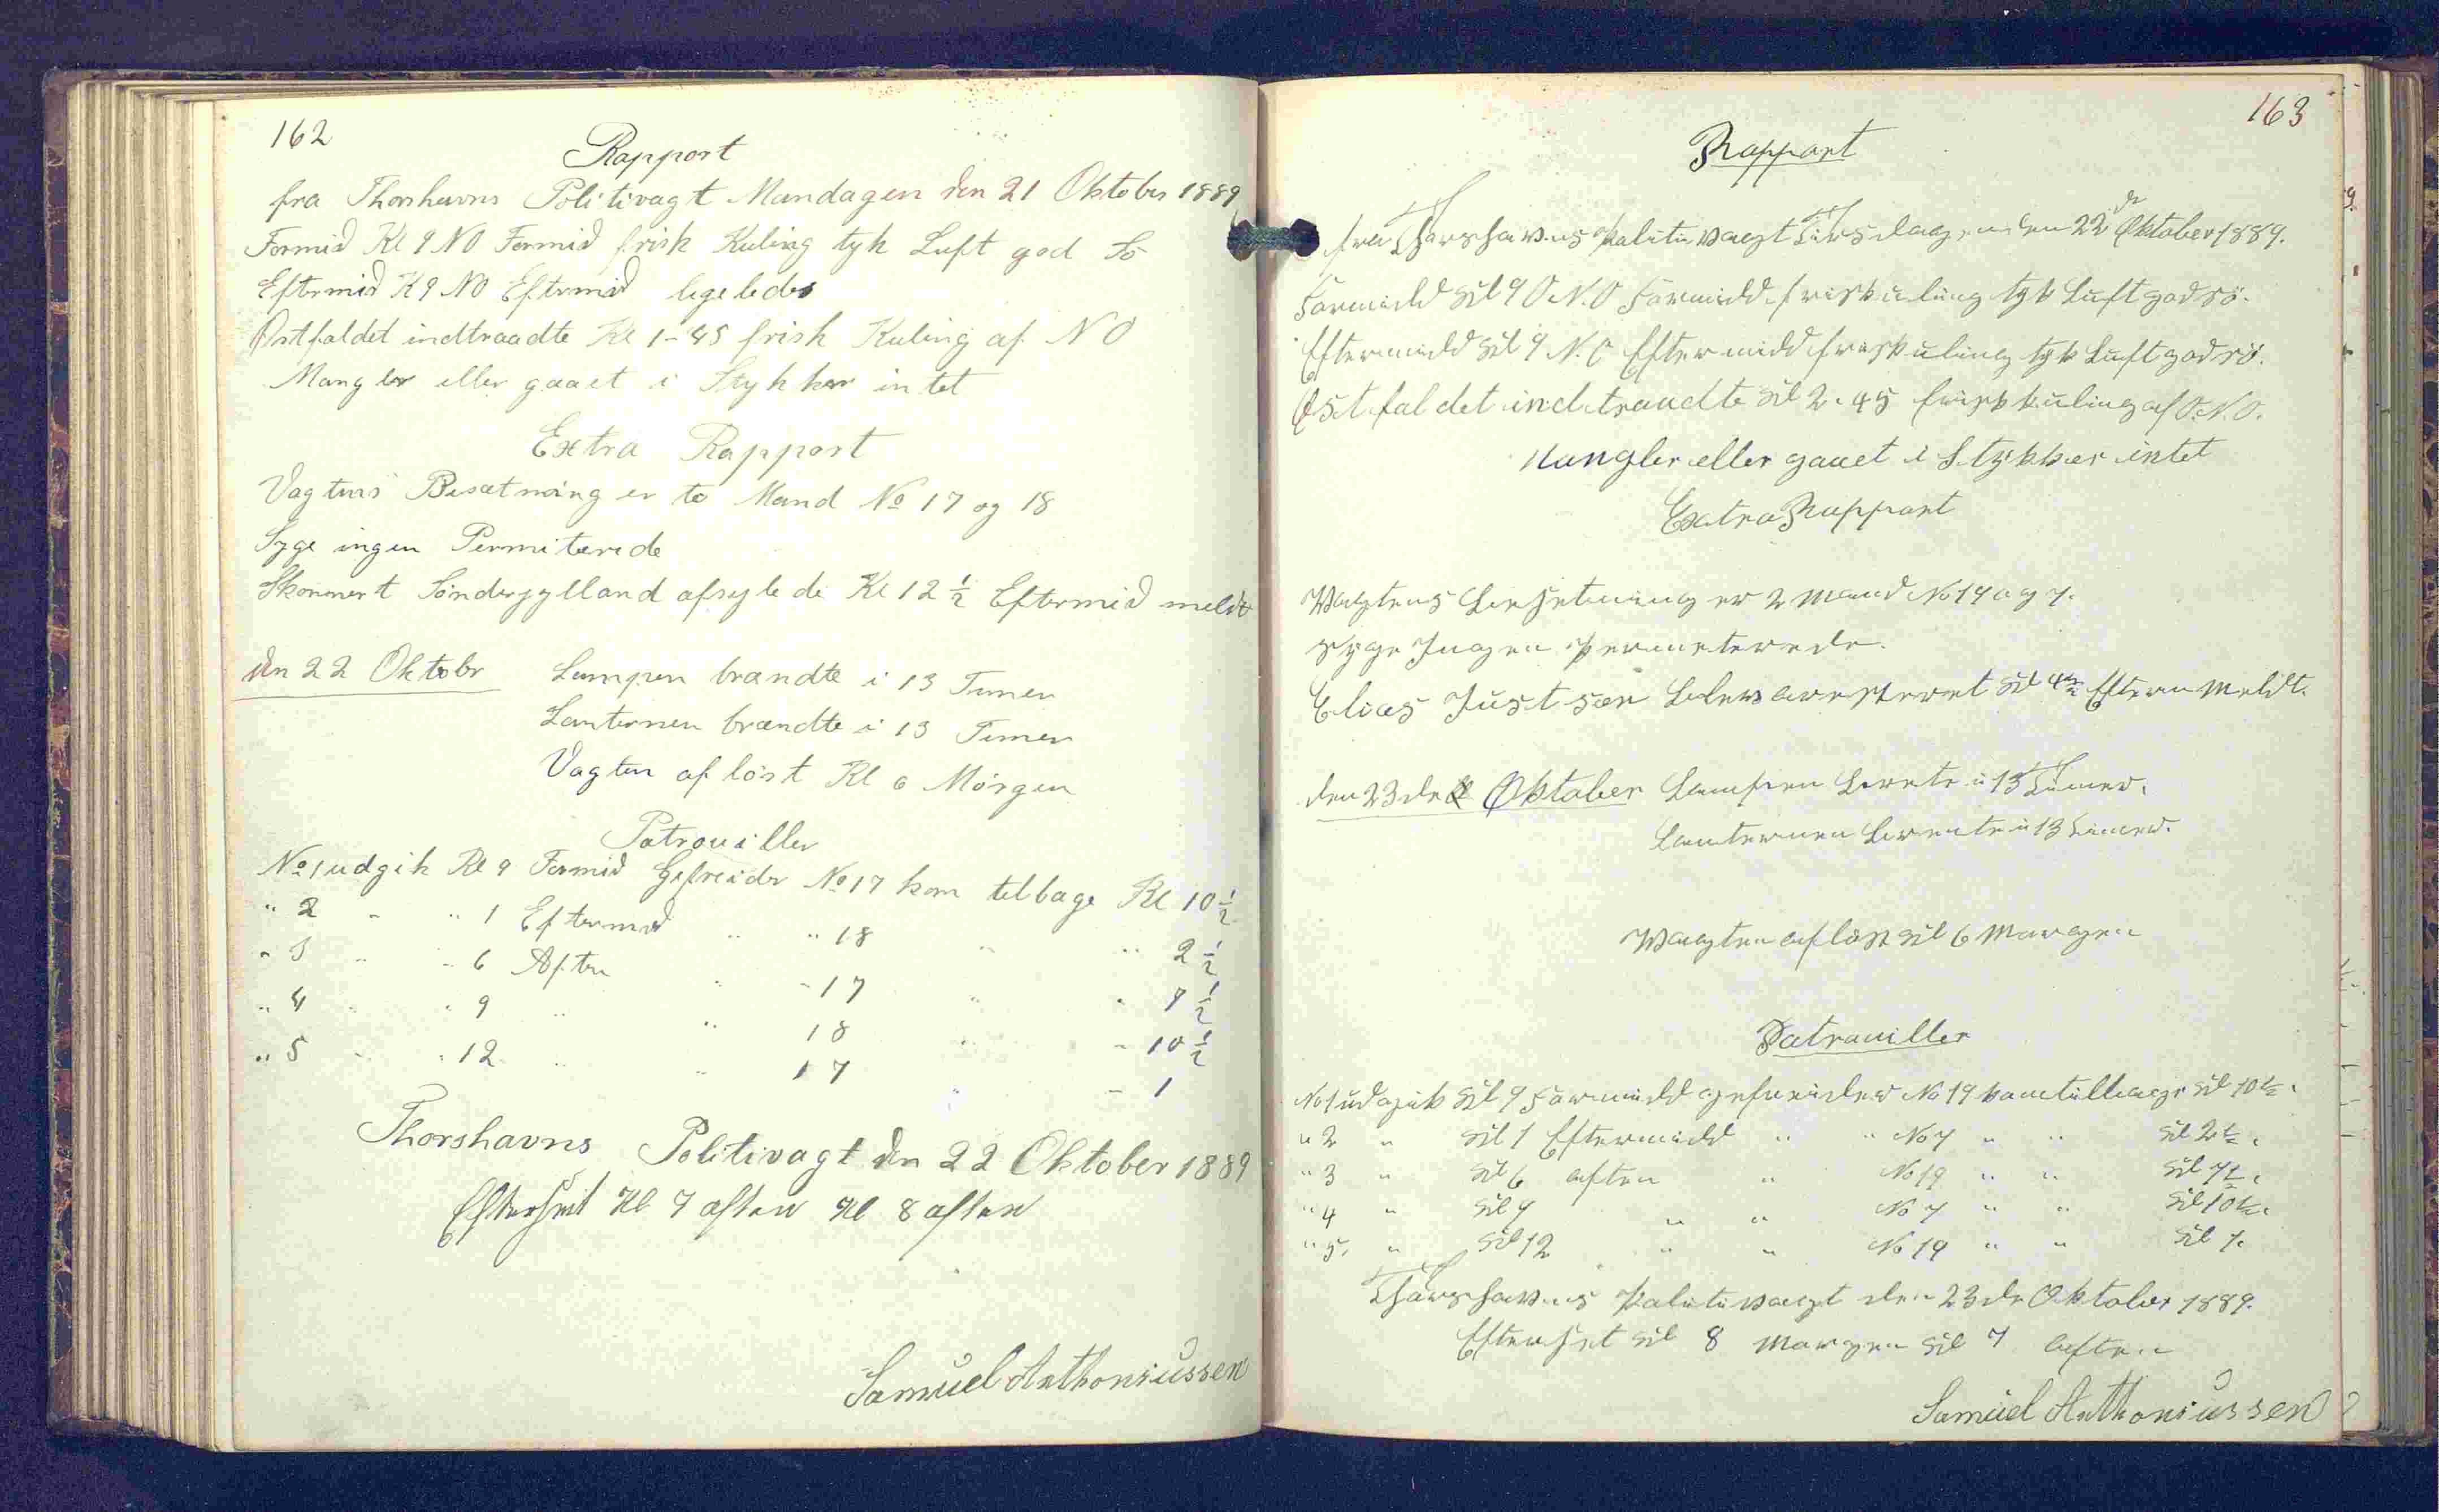 162
Rapport
fra Thorshavns Politivagt Mandagen den 21 Oktober 1889
Formid Kl 9 NO Formid frisk Kuling tyk Luft god Sö
Eftermid Kl 9 NO Eftermid ligeledes
Østfaldet indtraadte Kl 1-45 frisk Kuling af NO
Mangler eller gaaet i Stykker intet
Extra Rapport
Vagtens Besætning er to Mand № 17 og 18
Syge ingen Permiterede
Skonnert Sönderjylland afsejlede Kl 12 ½ Eftermid meldt
den 22 Oktobr Lampen brændte i 13 Timer
Lanternen brændte i 13 Timer
Vagten aflöst Kl 6 Morgen
Patrouiller
№ 1 udgik Kl 9 Formid Gefreider № 17 kom tilbage Kl 10 ½
" 2 " " 1 Eftermid " " 18 " " 2 ½
" 3 " " 6 Aften " " 17 " " 7 ½
" 4 " " 9 " " 18 " " 10 ½
" 5 " " 12 " " 17 " " 1
Thorshavns Politivagt den 22 Oktober 1889
Efterset Kl 7 aften Kl 8 aften
Samuel Anthoniussen
163
Rapport
fra Thorshavns Politivagt Tirsdagen den 22de Oktober 1889.
Formidd Kl 9 O.N.O Formidd frisk uling tyk Luft god sö.
Eftermidd Kl 9 N.O Eftermidd frisk uling tyk Luft god sö.
Østfaldet indtraadte Kl 2.45 frisk kuling af O.N.O.
Mangler eller gaaet i Stykker intet
Extra Rapport
Vagtens Besetning er 2 Mand No 19 og 7.
Syge Ingen Permeterede.
Elias Justsen blev aresteret Kl 4½ Efterm Meldt.
den 23de Oktober Lampen brente i 13 Timer.
Lanternen brente i 13 Timer.
Vagten aflöst Kl 6 Morgen
Patrouiller
No 1 udgik Kl 9 Formidd gefreider No 19 kom tilbage Kl 10½.
" 2 " Kl 1 Eftermidd " " No 7 " " Kl 2½.
" 3 " Kl 6 aften " No 19 " " Kl 7½.
" 4 " Kl 9 " " No 7 " " Kl 10½.
" 5. " Kl 12 " " No 19 " " Kl 1.
Thorshavns Politivagt den 23de Oktober 1889.
Efterset Kl 8 Morgen Kl 7 aften
Samuel Anthoniussen